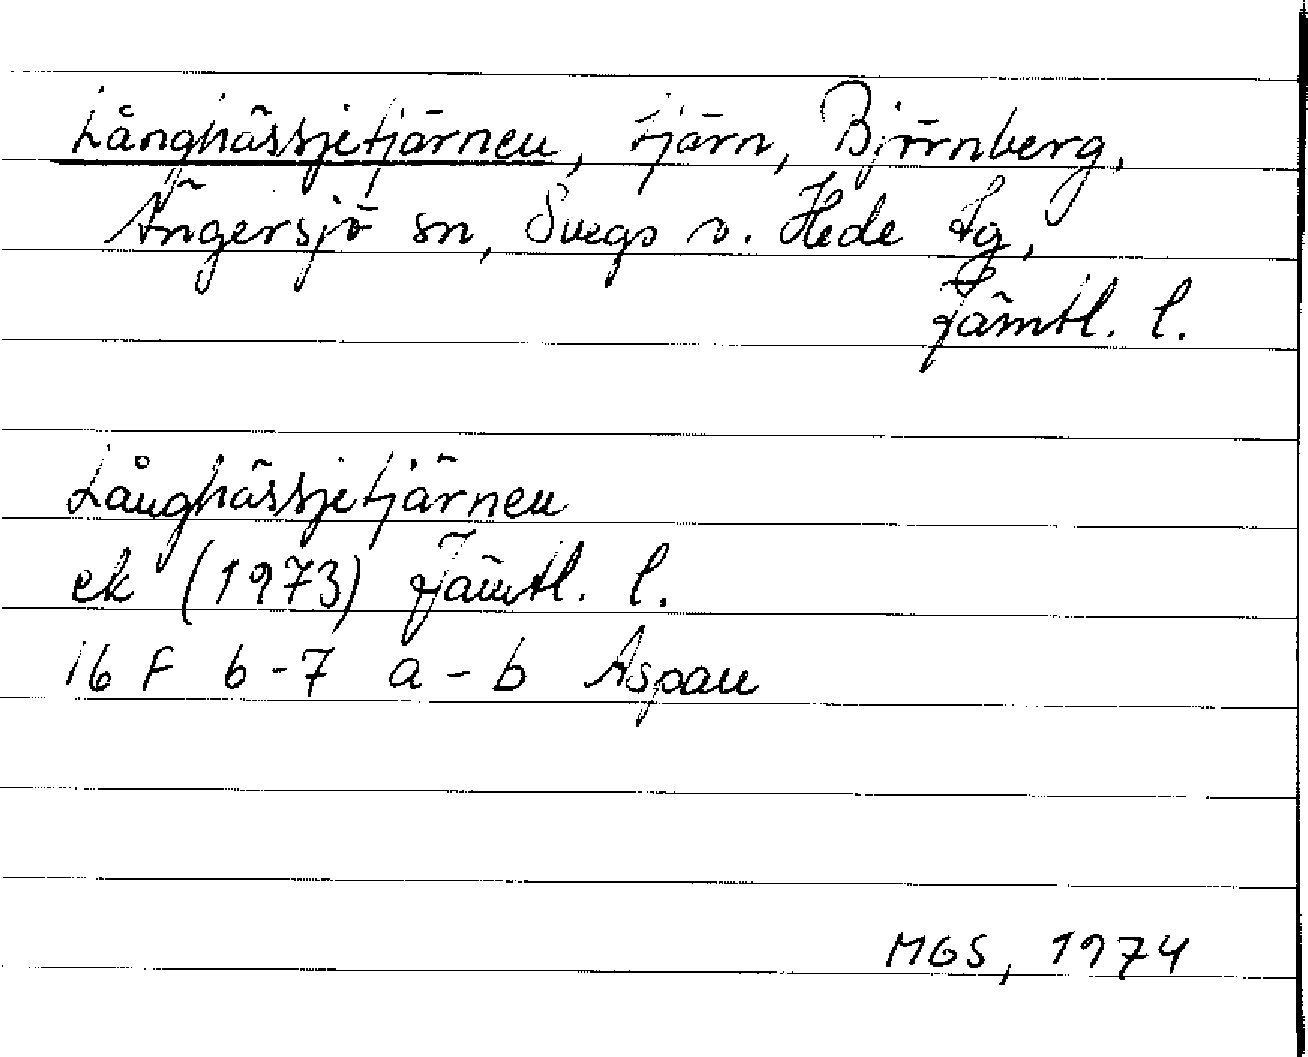 Långhässjetjärnen, tjärn, Björnberg,
Ängersjö sn, Svegs o. Hede tg,
Jämtl. l.
Långhässjetjärnen
ek (1973) Jämtl. l.
16 F 6-7 a-b Aspan
MGS, 1974